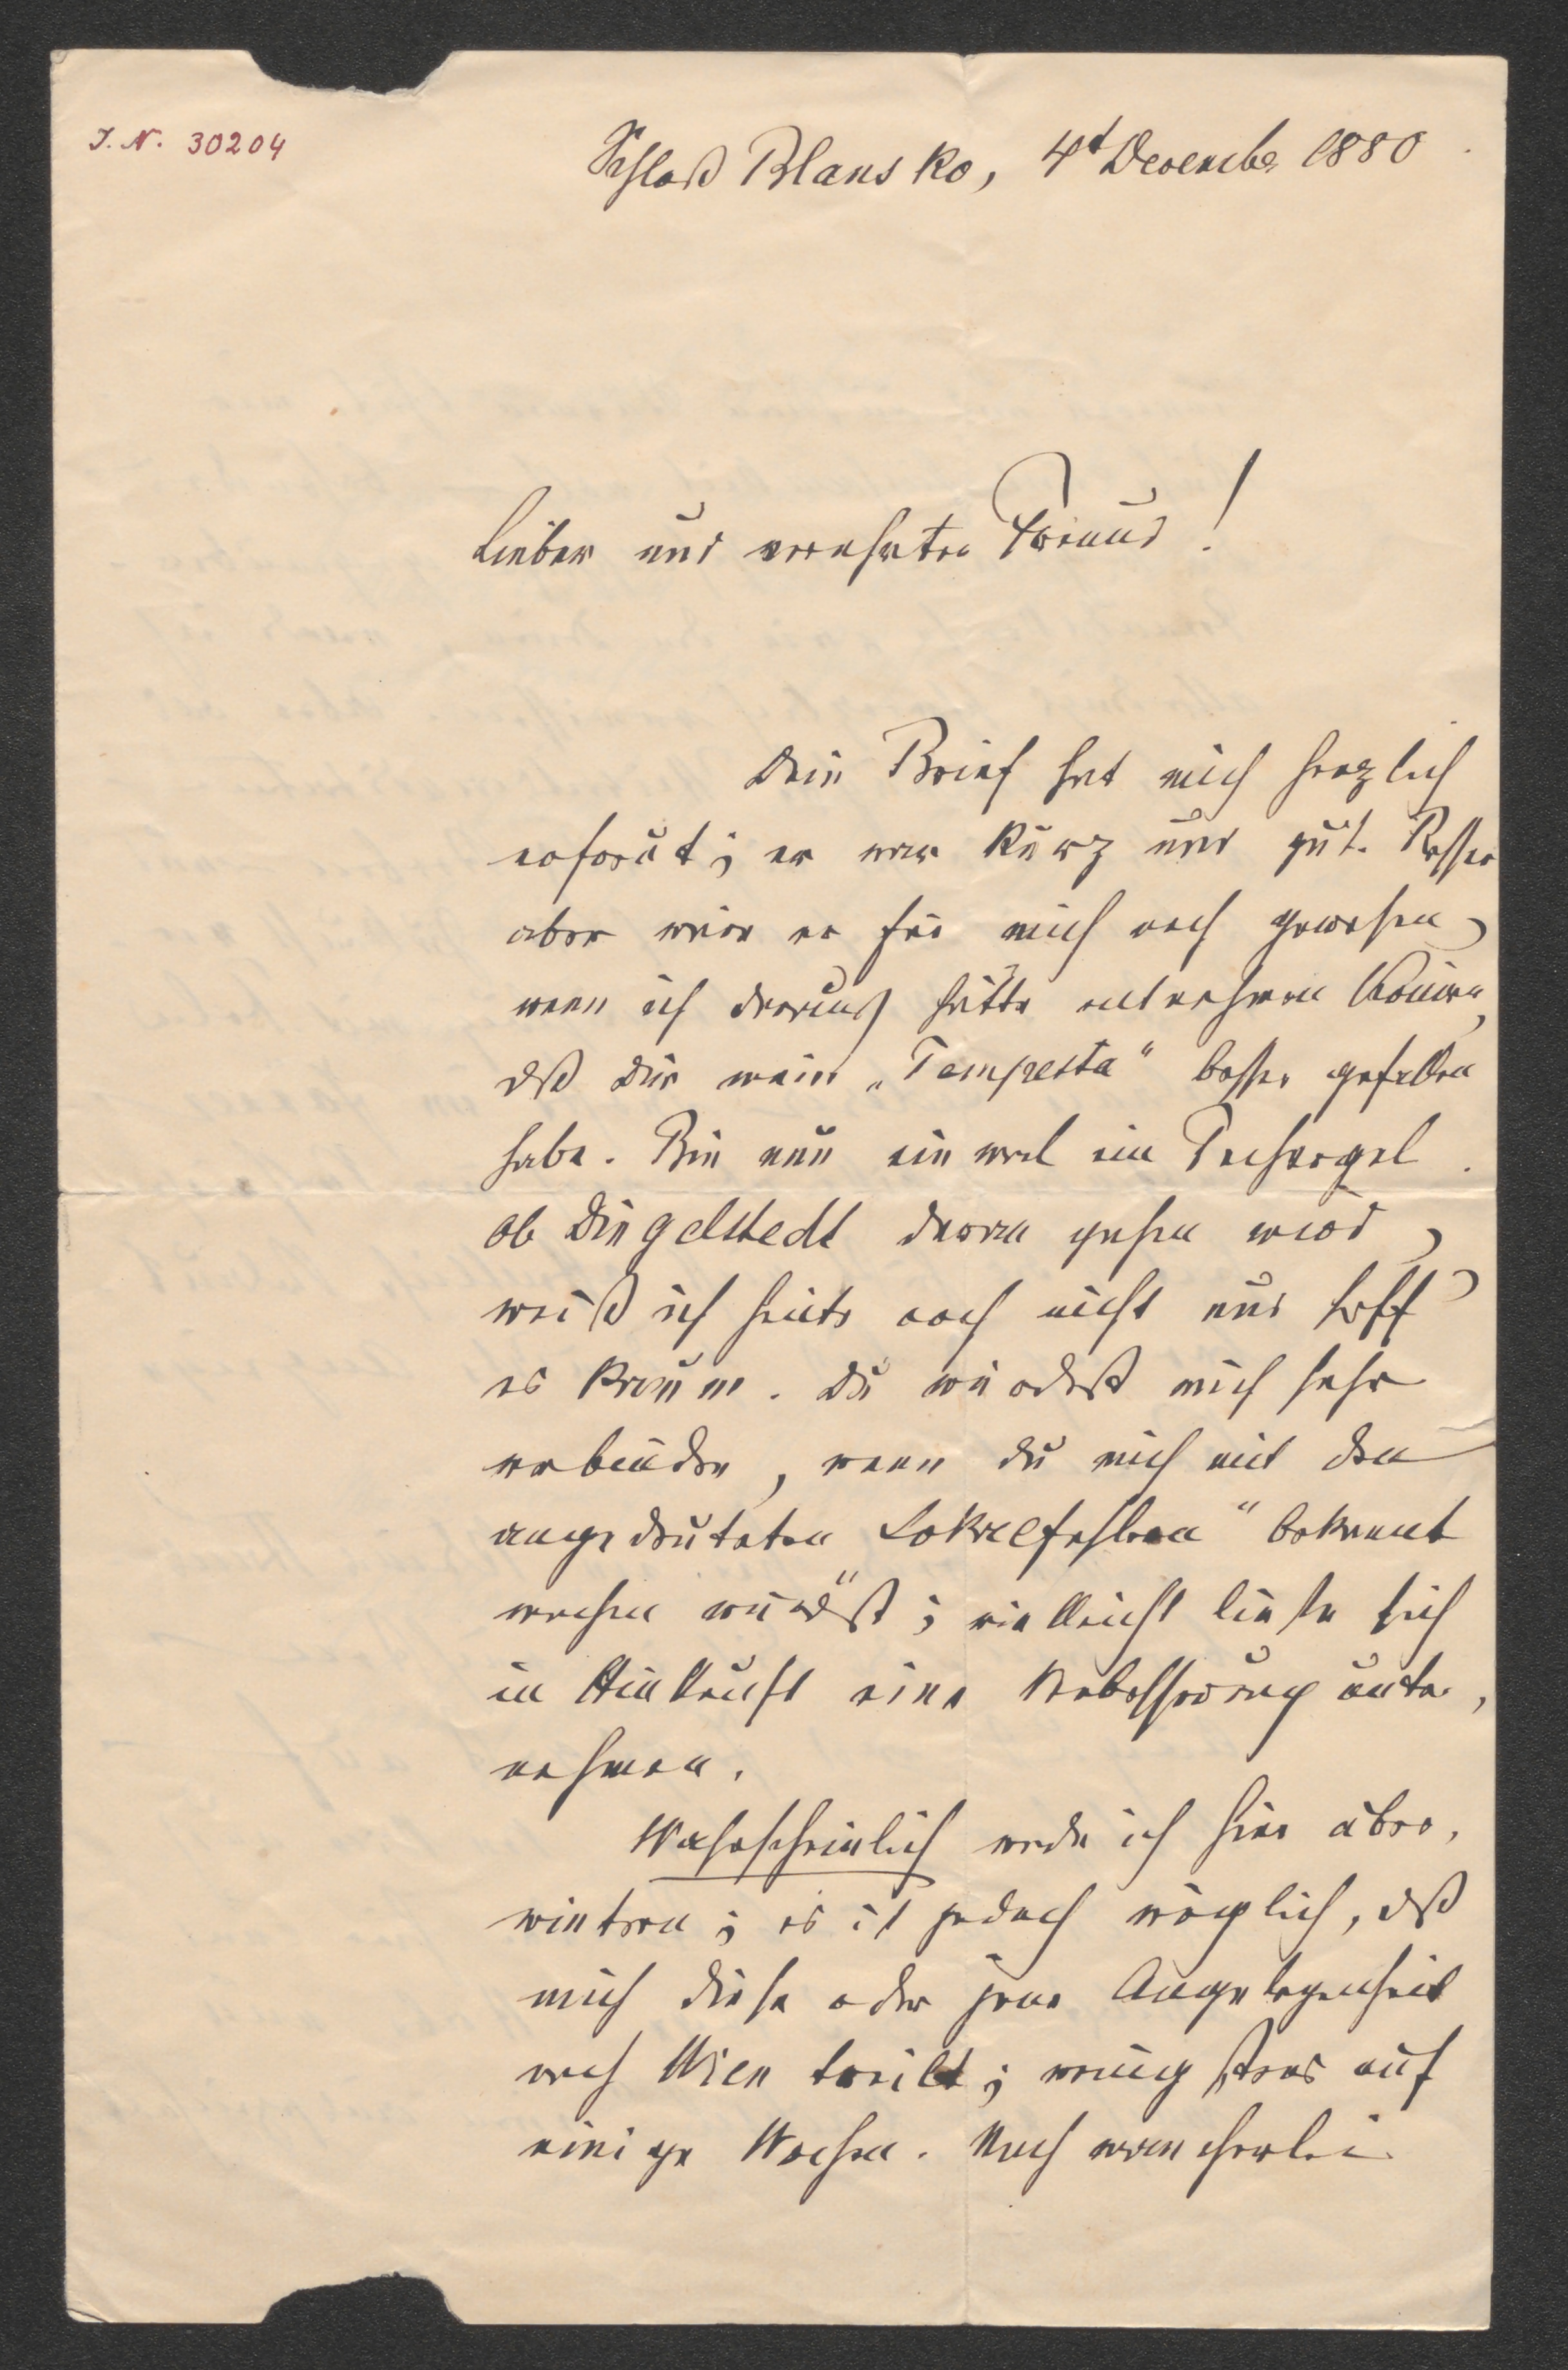 J. N. 30204
Schloß Blansko, 4t December 1880
Lieber und verehrter Freund!
Dein Brief hat mich herzlich
erfreut; er war kurz und gut. Besser
aber wäre er für mich noch gewesen,
wenn ich daraus hätte entnehmen können,
daß Dir mein „Tempesta“ besser gefallen
habe. Bin nun einmal ein Pechvogel.
Ob Dingelstedt daran gehen wird,
weiß ich heute noch nicht und hoff'
es kaum. Du würdest mich sehr
verbinden, wenn Du mich mit den
angedeuteten Lokalfehlern“ bekannt
machen würdest; vielleicht ließe sich
in Hinkunft eine Verbesserung unter-
nehmen.
Wahrscheinlich werde ich hier über-
wintern; es ist jedoch möglich, daß
mich diese oder jene Angelegenheit
nach Wien treibt; wenigstens auf
einige Wochen. Auch mancherlei